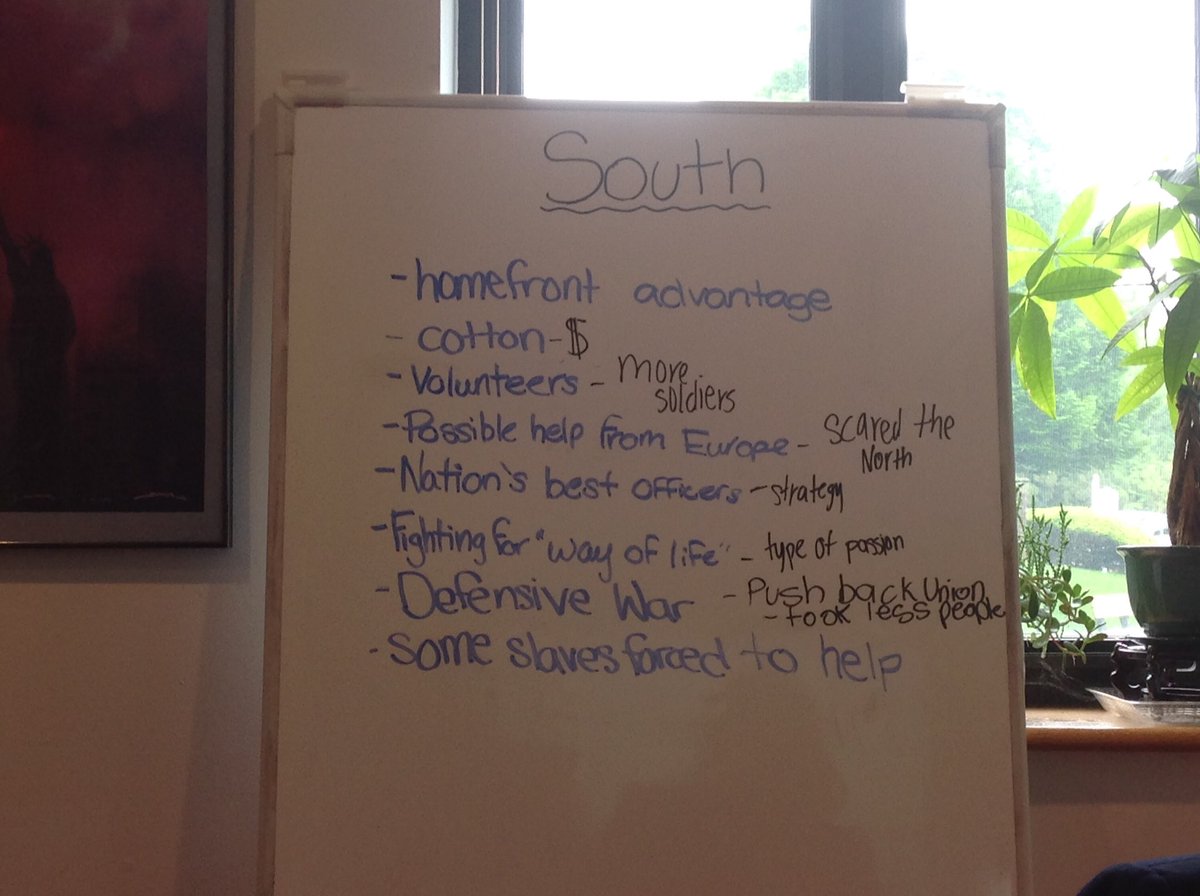 South
-homefront advantage
- cotton-$
- Volunteers - more soldiers
-Possible help from Europe - scared the North
-Nation's best officers - strategy
-Fighting for "way of life" - type of passion
- Defensive War - Push back Union
- took less people
- some slaves forced to help